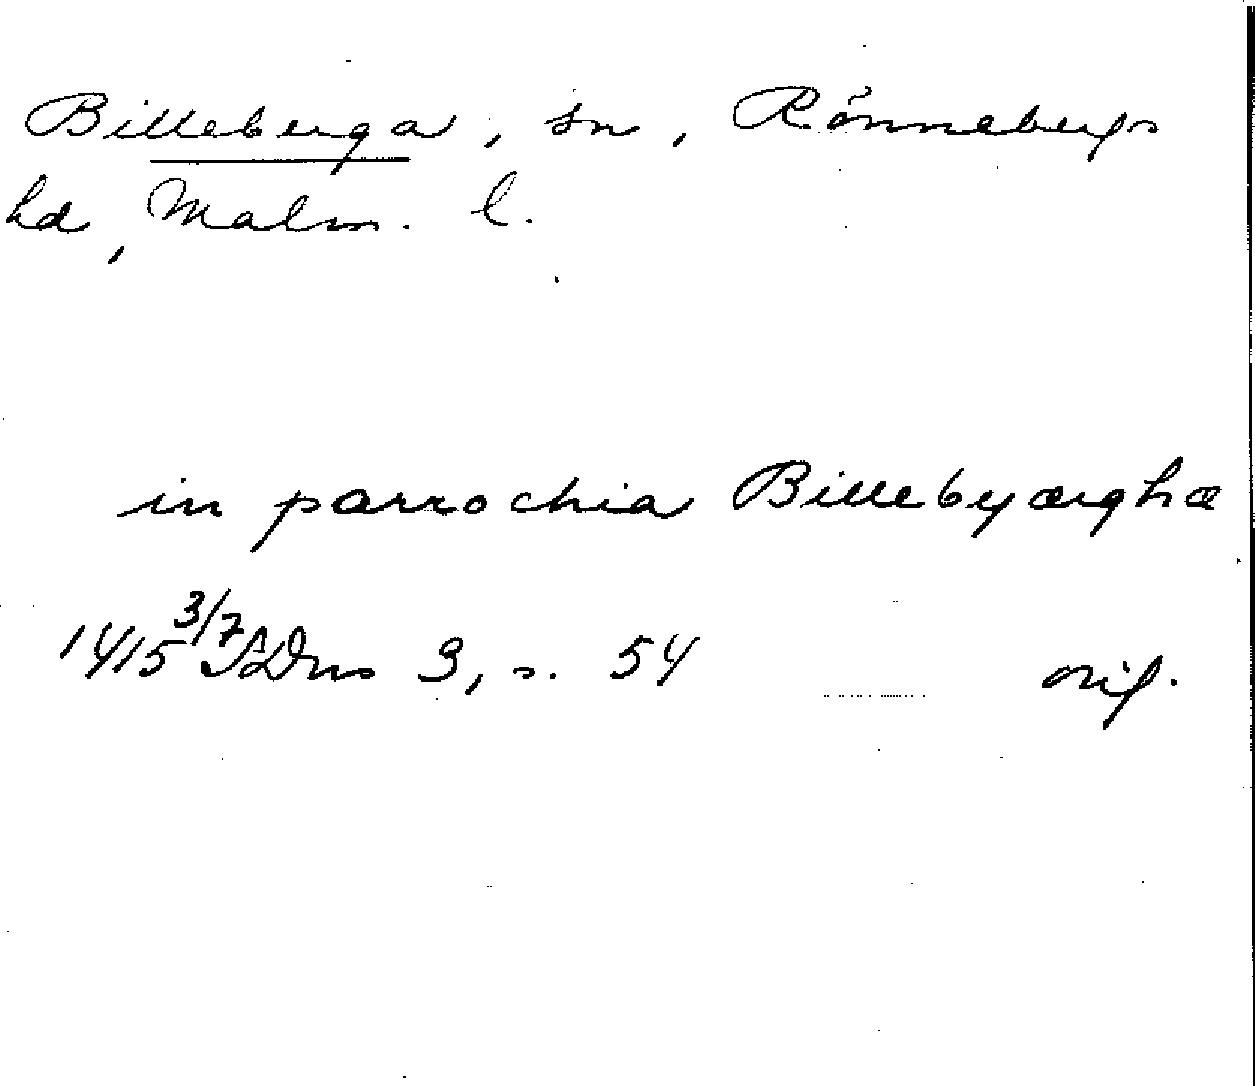 Billeberga, sn, Rönnebergs
hd, Malm. l.
in parrochia Billebyærghæ
1415 3/7 SDns 3, s. 54 orig.